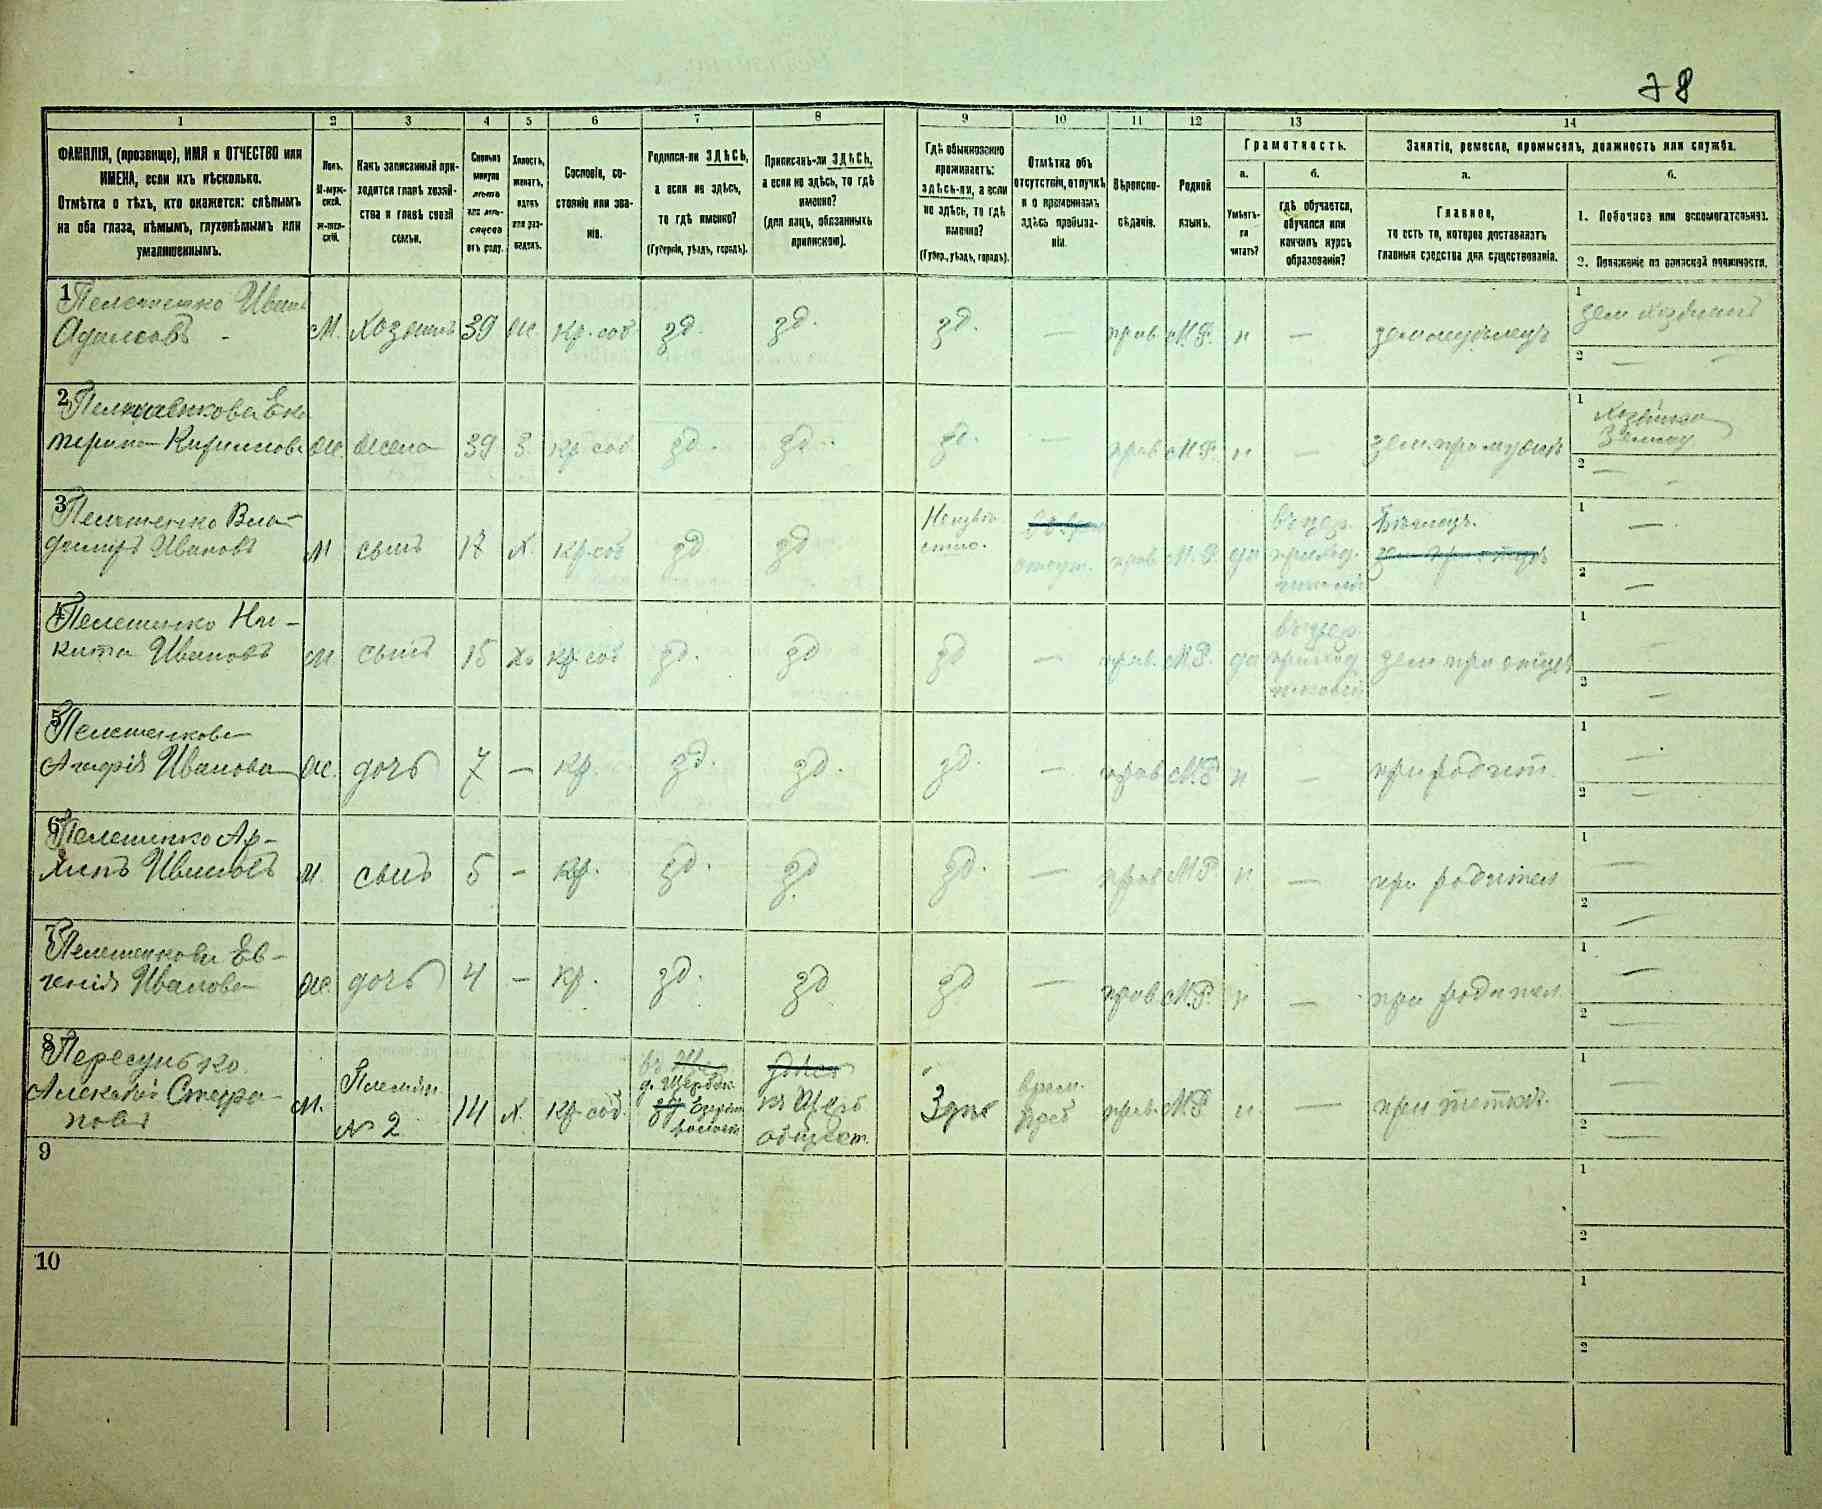 78
1 2 3 4 5 6 7 8 9 10 11 12 13 14
ФАМИЛІЯ, (прозвище), ИМЯ и ОТЧЕСТВО или
ИМЕНА, если ихъ нѣсколько.
Отмѣтка о тѣхъ, кто окажется: слѣпымъ
на оба глаза, нѣмымъ, глухонѣмымъ или
умалишеннымъ.
Полъ.
М-муж-
ской.
Ж-жен-
скій.
Какъ записанный при-
ходится главѣ хозяй-
ства и главѣ своей
семьи.
Сколько
минуло
лѣтъ
или мѣ-
сяцевъ
отъ роду.
Холостъ,
женатъ,
вдовъ
или раз-
веденъ.
Сословіе, со-
стояніе или зва-
ніе.
Родился-ли ЗДѢСЬ,
а если не здѣсь,
то гдѣ именно?
(Губернія, уѣздъ, городъ).
Приписанъ-ли ЗДѢСЬ,
а если не здѣсь, то гдѣ
именно?
(для лицъ, обязанныхъ
припискою).
Гдѣ обыкновенно
проживаетъ:
здѣсь-ли, а если
не здѣсь, то гдѣ
именно?
(Губер., уѣздъ, городъ).
Отмѣтка объ
отсутствіи, отлучкѣ
и о временномъ
здѣсь пребыва-
ніи.
Вѣроиспо-
вѣданіе.
Родной
языкъ.
Грамотность.
а.
Умѣетъ-
ли
читать?
б.
гдѣ обучается,
обучался или
кончилъ курсъ
образованія?
Занятіе, ремесло, промыселъ, должность или служба.
а.
Главное,
то есть то, которое доставляетъ
главныя средства для существованія.
б.
1. Побочное или вспомогательное.
2. Положеніе по воинской повинности.
1 Пелешенко Иванъ
Адамовъ М. хозяинъ 39 ж. кр. соб зд. зд. зд. — прав. М.Р. н —
1
2 —
2 Пелешенкова Ека
терина Кирилова Ж. жена 39 З. кр. соб зд. зд. зд. — прав М.Р. н —
1 Хозяйка
2 —
3 Пелешенко Вла-
димiръ Ивановъ М сынъ 17 х. кр. соб зд зд
Неизвѣ-
стно.
отсут. прав. М.Р. да
1 —
2 —
4 Пелешенко Ни-
кита Ивановъ М сынъ 15 хо кр. соб зд. зд зд — прав. М.Р. да
зем при отцѣ
1 —
2 —
5 Пелешенкова
Ивановa Ж. дочь 7 — кр. зд. зд. зд. — прав М.Р н — при родит.
1 —
2 —
6 Пелешенко Ар-
хипъ Ивановъ М. сынъ 5 — кр. зд. зд. зд. — прав М.Р н — при родител
1 —
2 —
7 Пелешенкова Ев-
генія Иванова Ж. дочь 4 — кр. зд. зд зд — прав. М.Р. н — при родител.
1 —
2 —
8 Пересунько
Алексѣй Стефа-
новъ М. Племян.
№ 2 14 х. кр. соб.
общест.
прав. М.Р н — при теткѣ.
1 —
2 —
9
1
2
10
1
2